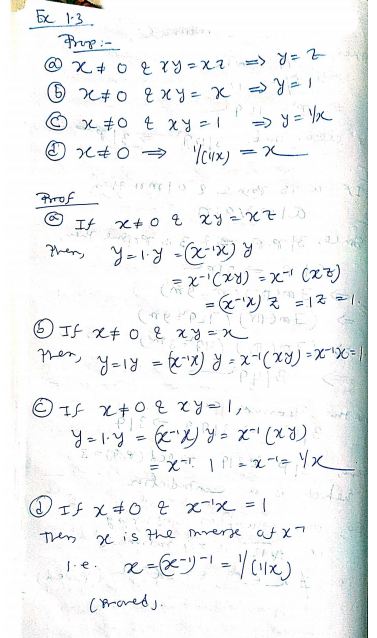 Ex 1.3
Prop:-
ⓐ x ≠ 0 & xy = xz ⟹ y = z
ⓑ x ≠ 0 & xy = x ⟹ y = 1
ⓒ x ≠ 0 & xy = 1 ⟹ y = 1/x
ⓓ x ≠ 0 ⟹ 1/(1/x) = x
Prof
ⓐ If x ≠ 0 & xy = xz
Then, y = 1·y = (x⁻¹x) y
= x⁻¹(xy) = x⁻¹ (xz)
= (x⁻¹x) z = 1z = 1.
ⓑ If x ≠ 0 & xy = x
Then, y = 1y = (x⁻¹x) y = x⁻¹(xy) = x⁻¹x = 1
ⓒ If x ≠ 0 & xy = 1,
y = 1·y = (x⁻¹x) y = x⁻¹ (xy)
= x⁻¹ 1 = x⁻¹ = 1/x
ⓓ If x ≠ 0 & x⁻¹x = 1
Then x is the inverse of x⁻¹
i.e. x = (x⁻¹)⁻¹ = 1/(1/x)
(Proved).